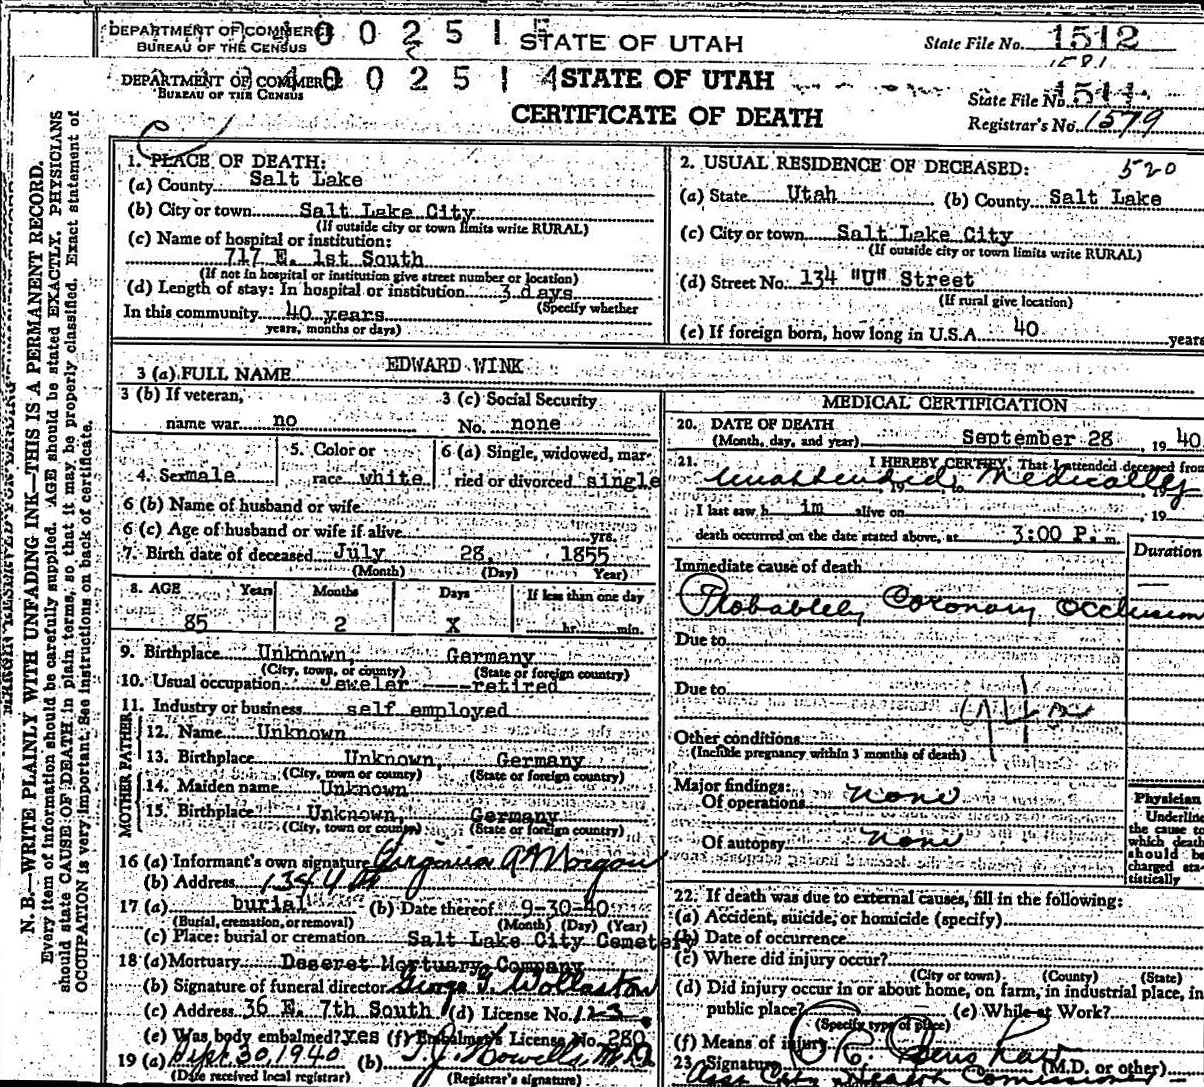 DEPARTMENT OF COMMERCE
BUREAU OF THE CENSUS
0 0 2 5 1
STATE OF UTAH
State File No. 1512
1581
DEPARTMENT OF COMMERCE
BUREAU OF THE CENSUS
4 0 0 2 5 1 4
STATE OF UTAH
CERTIFICATE OF DEATH
State File No. 1511
Registrar's No. 1579
N. B.—WRITE PLAINLY WITH UNFADING INK—THIS IS A PERMANENT RECORD.
Every item of information should be carefully supplied. AGE should be stated EXACTLY. PHYSICIANS
should state CAUSE OF DEATH in plain terms, so that it may be properly classified. Exact statement of
OCCUPATION is very important. See instructions on back of certificate.
1. PLACE OF DEATH:
(a) County Salt Lake
(b) City or town Salt Lake City
(If outside city or town limits write RURAL)
(c) Name of hospital or institution:
717 E. 1st South
(If not in hospital or institution give street number or location)
(d) Length of stay: In hospital or institution 3 days
(Specify whether
In this community 40 years
years, months or days)
2. USUAL RESIDENCE OF DECEASED: 520
(a) State Utah (b) County Salt Lake
(c) City or town Salt Lake City
(If outside city or town limits write RURAL)
(d) Street No. 134 "U" Street
(If rural give location)
(e) If foreign born, how long in U.S.A. 40 years
3 (a) FULL NAME EDWARD WINK
3 (b) If veteran,
name war no
3 (c) Social Security
No. none
4. Sex male
5. Color or
race white
6 (a) Single, widowed, mar-
ried or divorced single
6 (b) Name of husband or wife
6 (c) Age of husband or wife if alive yrs.
7. Birth date of deceased July 28, 1855
(Month) (Day) Year)
8. AGE Years Months Days If less than one day
85 2 X hr. min.
9. Birthplace Unknown, Germany
(City, town, or county) (State or foreign country)
10. Usual occupation Jeweler ----retired
11. Industry or business self employed
FATHER
12. Name Unknown
13. Birthplace Unknown, Germany
(City, town or county) (State or foreign country)
MOTHER
14. Maiden name Unknown
15. Birthplace Unknown, Germany
(City, town or county) (State or foreign country)
16 (a) Informant's own signature Virginia A Morgan
(b) Address 134 U St
17 (a) burial (b) Date thereof 9-30-40
(Burial, cremation, or removal) (Month) (Day) (Year)
(c) Place: burial or cremation Salt Lake City Cemetery
18 (a) Mortuary Deseret Mortuary Company
(b) Signature of funeral director George G. Wollaston
(c) Address 36 E. 7th South (d) License No. 123
(e) Was body embalmed? yes (f) Embalmer's License No. 280
19 (a) Sept. 30, 1940 (b) T.J. Howells, M.D.
(Date received local registrar) (Registrar's signature)
MEDICAL CERTIFICATION
20. DATE OF DEATH
(Month, day, and year) September 28, 1940
21. I HEREBY CERTIFY, That I attended deceased from
Unattended Medically
19 to 19
I last saw him alive on , 19
death occurred on the date stated above, at 3:00 P. m.
Duration
Immediate cause of death
Probablely Coronary Occlusion
Due to
Due to
94a
Other conditions
(Include pregnancy within 3 months of death)
Major findings:
Of operations none
Of autopsy none
Physician
Underline
the cause to
which death
should be
charged sta-
tistically
22. If death was due to external causes, fill in the following:
(a) Accident, suicide, or homicide (specify)
(b) Date of occurrence
(c) Where did injury occur?
(City or town) (County) (State)
(d) Did injury occur in or about home, on farm, in industrial place, in
public place? (e) While at Work?
(Specify type of place)
(f) Means of injury
23. Signature (M.D. or other)
Asst City Health Commissioner